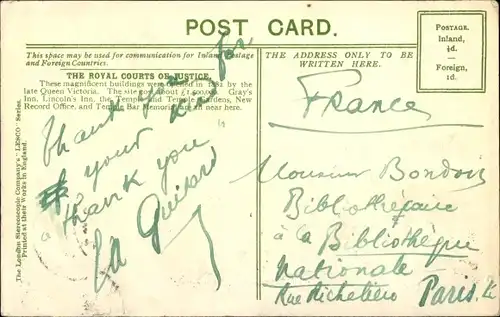 POST CARD.
POSTAGE.
Inland,
½d.
Foreign,
1d.
This space may be used for communication for Inland Postage
and Foreign Countries.
THE ADDRESS ONLY TO BE
WRITTEN HERE.
THE ROYAL COURTS OF JUSTICE.
These magnificent buildings were opened in 1882 by the
late Queen Victoria. The site cost about £1,500,000. Gray's
Inn, Lincoln's Inn, the Temple and Temple Gardens, New
Record Office, and Temple Bar Memorial are all near here.
The London Stereoscopic Company's "LESCO" Series.
Printed at their Works in England.
Thank you for
your kind
"thank you"
La
France
Monsieur Bondois
Bibliothécaire
à la Bibliothèque
Nationale
Rue Richelieu Paris.